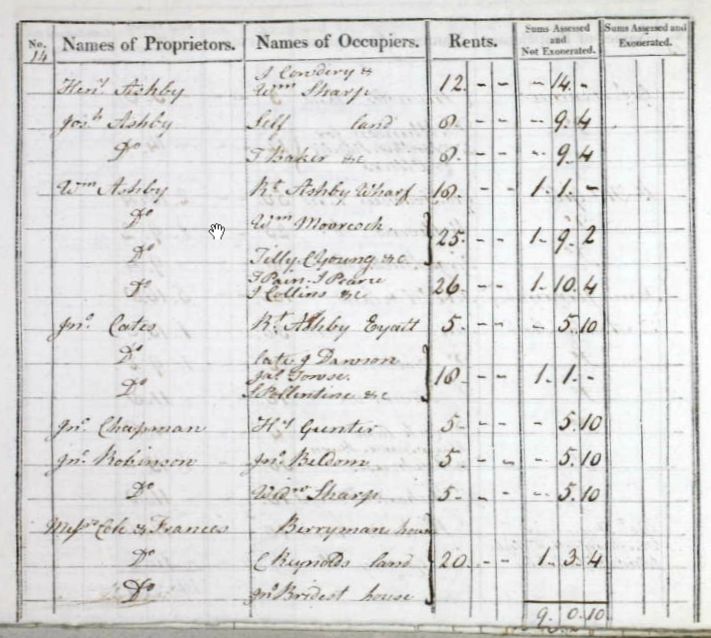 No. 14 Names of Proprietors. Names of Occupiers. Rents. Sums Assessed and Not Exonerated. Sums Assessed and Exonerated.
J Cowdery &
Heny Ashby Wm Sharp 12 - - - 14 -
Josh Ashby Self land 8 - - - 9 4
Do T Baker &c 8 - - - 9 4
Wm Ashby Rt Ashby Wharf 18 - - 1 1 -
Do Wm Moorcock
25 - - 1 9 2
Do Tilly C Young &c
J Pain J Pearce
Do J Collins &c 26 - - 1 10 4
Jno Cates Rt Ashby Eyatt 5 - - - 5 10
Do late J Dawson
Jas Towse 18 - - 1 1 -
Do J Pollentine &c
Jno Chapman Hy Gunter 5 - - - 5 10
Jno Robinson Jno Beldom 5 - - - 5 10
Do Widw Sharp 5 - - - 5 10
Messrs Cole & Frances Berryman house
Do C Reynolds land 20 - - 1 3 4
Do Jno Bridest house
9 0 10